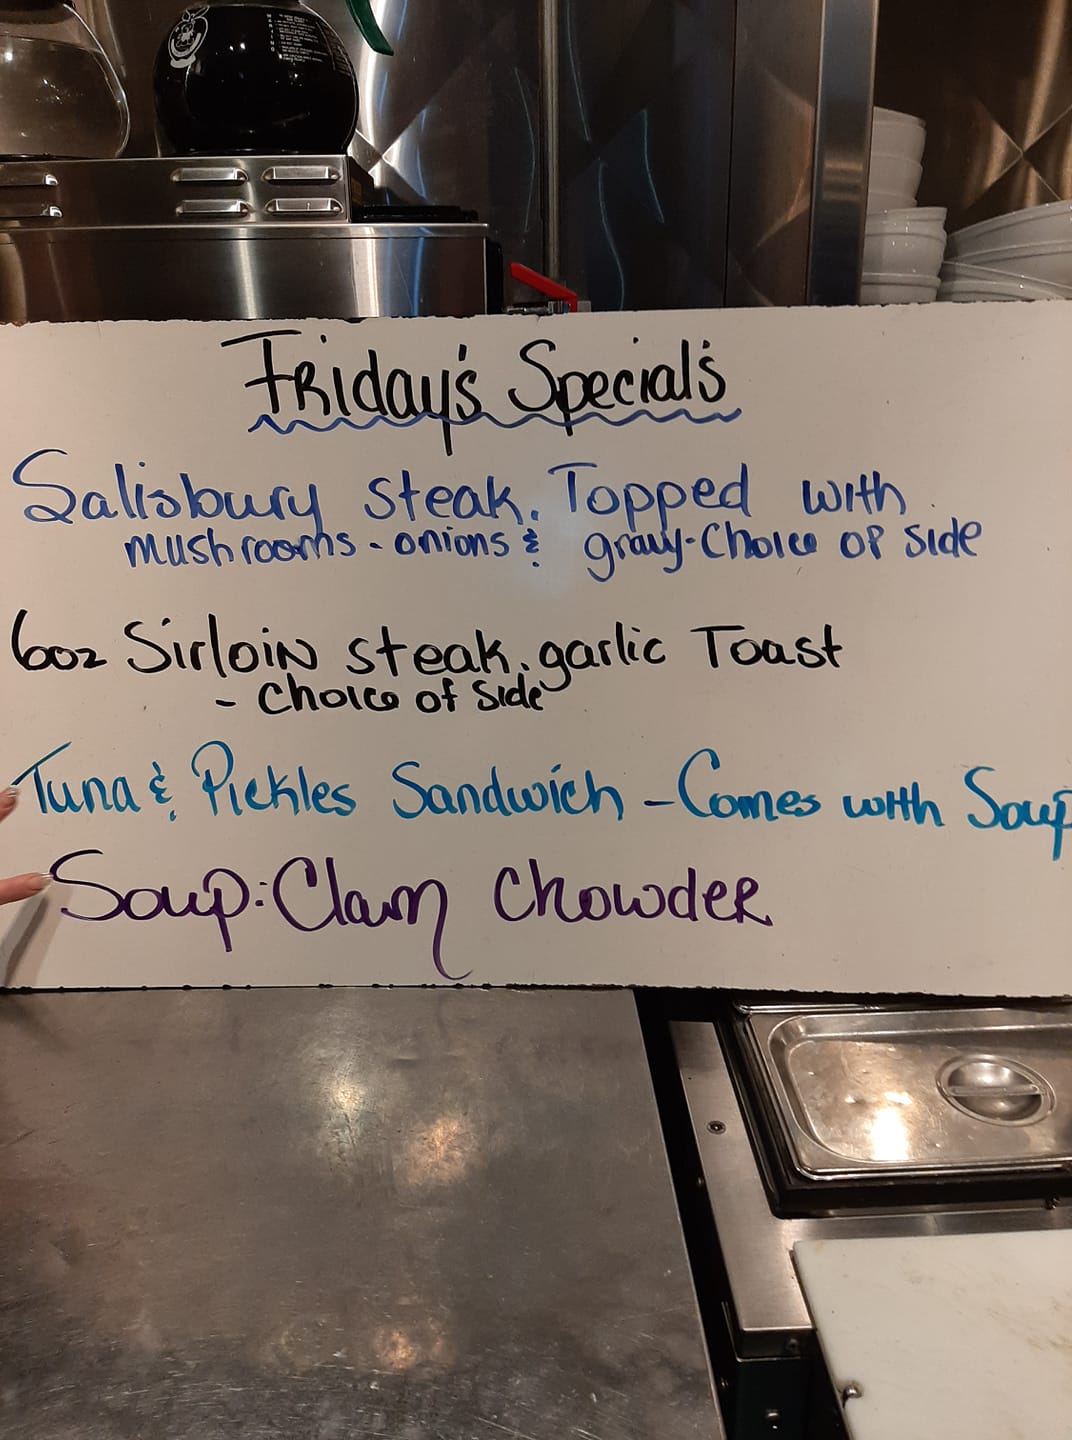 Friday's Special's
Salisbury steak. Topped with
mushrooms - onions & gravy - Choice of side
6oz Sirloin steak. garlic Toast
- Choice of Side
Tuna & Pickles Sandwich - Comes with Soup
Soup: Clam Chowder